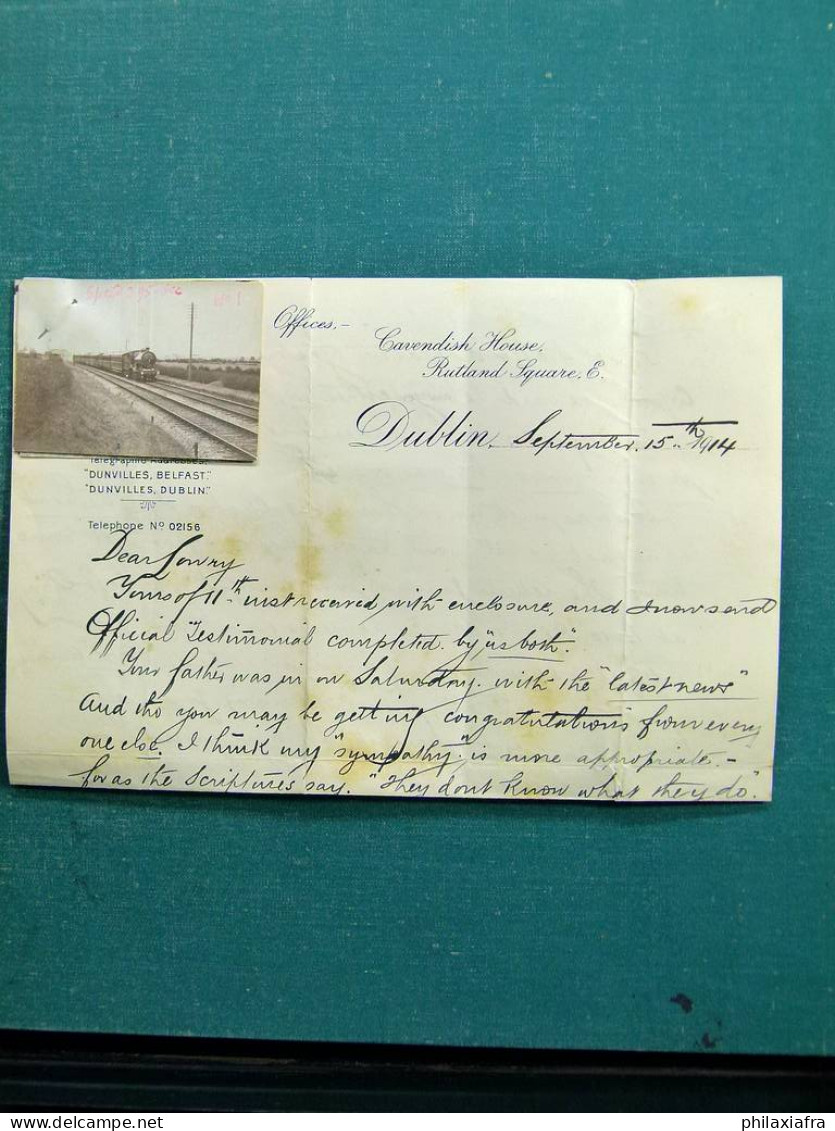 No 1
Offices,-
Cavendish House,
Rutland Square, E.
Dublin, September, 15th 1914
Telegraphic Addresses,
"DUNVILLES, BELFAST."
"DUNVILLES, DUBLIN."
Telephone No 02156
Dear Lowry
Yours of 11th inst received with enclosure, and I now send
Official Testimonial completed by "us both".
Your father was in on Saturday with the "latest news"
And tho you may be getting congratulations from every
one else. I think my "sympathy" is more appropriate.-
for as the Scriptures say. "They dont know what they do".
delcampe.net
philaxiafra